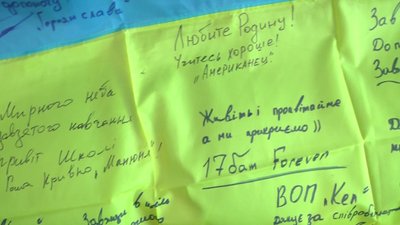 допомогу
Героям слава
Любите Родину!
Учитесь хороше!
„Американец"
Зав
До п
Зав
Мирного неба
завзятого навчання
привіт Школі
Гоша Кривко „Манюня"!
Живіть і процвітайте
а ми прикриємо))
17 бат Foreven
ВОП „Кеп"
Дякує за співробі
Завжди